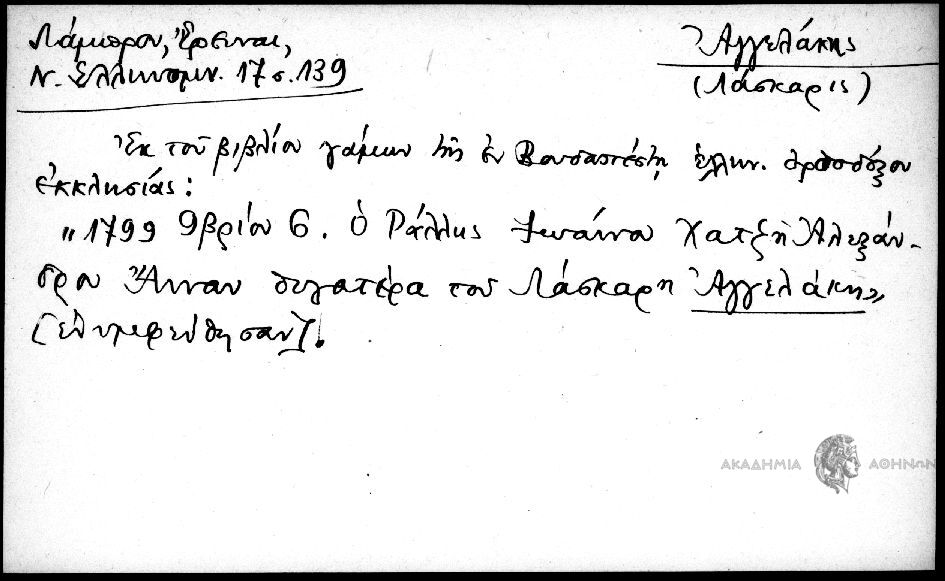 Λάμπρου, Ἔρευναι,
Ν. Ἑλληνομν. 17 σ. 139
Ἀγγελάκης
(Λάσκαρις)
Ἐκ τοῦ βιβλίου γάμων τῆς ἐν Βουδαπέστῃ ἑλλην. ὀρθοδόξου
ἐκκλησίας:
"1799 9βρίου 6. ὁ Ράλλης Ἰωάννου Χατζῆ Ἀλεξάν-
δρου Ἄνναν θυγατέρα τοῦ Λάσκαρη Ἀγγελάκη"
[ἐνυμφεύθησαν].
ΑΚΑΔΗΜΙΑ ΑΘΗΝΩΝ